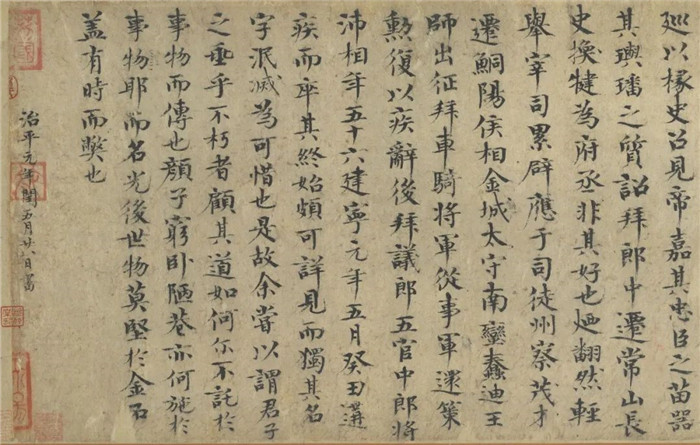 廵以椽史召見帝嘉其忠臣之苗器
其璵璠之質詔拜郎中遷常山長
史換犍為府丞非其好也廼翻然輕
舉宰司累辟應于司徒州察茂才
遷鮦陽侯相金城太守南蠻蠢迪王
師出征拜車騎將軍從事軍還策
勲復以疾辭後拜議郎五官中郎將
沛相年五十六建寧元年五月癸丑遘
疾而卒其終始頗可詳見而獨其名
字泯滅為可惜也是故余嘗以謂君子
之垂乎不朽者顧其道如何尓不託於
事物而傳也顏子窮卧陋巷亦何施於
事物耶而名光後世物莫堅於金石
蓋有時而獘也
治平元年閏五月廿八日書